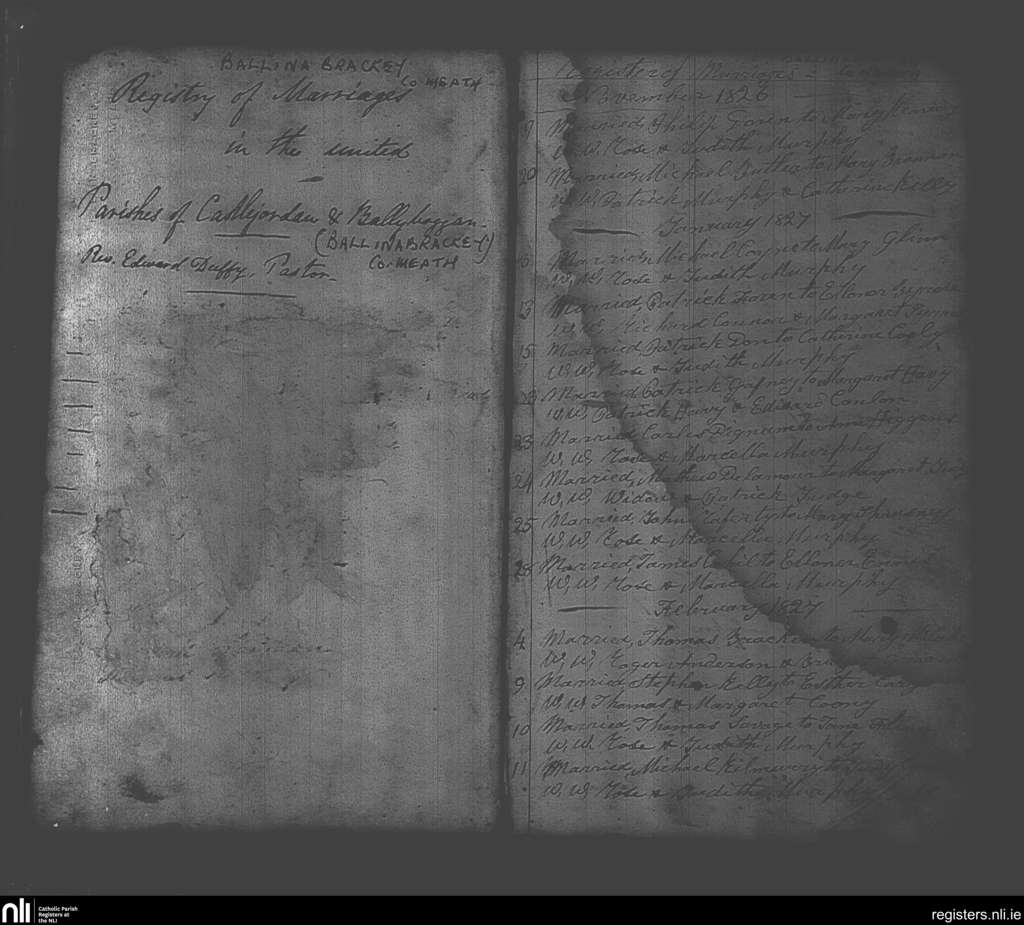 BALLINA BRACKEY
Co MEATH
Registry of Marriages
in the united
Parishes of Castlejordan & Ballyboggan
(BALLINABRACKEY)
Co. MEATH
Rev. Edward Duffy, Pastor
Register of Marriages
November 1826
Married, Philip Doren to Mary
W, W, Rose & Judith Murphy
20 Married, Michael to Mary Brannon
W, W, Patrick Murphy & Catherine Kelly
January 1827
Married, Michael to Mary Glinn
W, W, Rose & Judith Murphy
13 Married, Patrick to Ellonor
W, W, Richard Connor & Margaret
15 Married, Patrick to Catherine
W, W, Rose & Judith Murphy
Married Patrick Gafney to Margaret Havy
W, W, Patrick Havy & Edward Canlon
23 Married, Carlos Dignam to Ann Higgens
W, W, Rose & Marcella Murphy
24 Married, Mathew Delamour to Margaret
W, W, Widow & Patrick Judge
25 Married, John to Mary
W, W, Rose & Marcella Murphy
28 Married, James Cahil to Ellonor
W, W, Rose & Marcella Murphy
February 1827
4 Married, Thomas Bracken to
W, W, Roger Anderson &
9 Married Stephen Kelly to Easther
W, W, Thomas & Margaret Coony
10 Married Thomas Savage to Jane
W, W, Rose & Judith Murphy
11 Married, Michael to
W, W, Rose & Judith Murphy
nli
Catholic Parish
Registers at
the NLI
registers.nli.ie